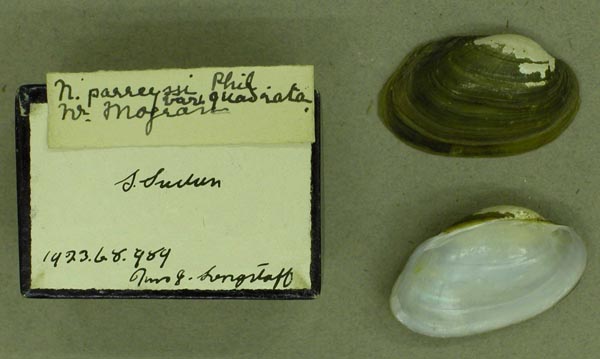 N. parreyssi Phil
var. quadrata.
Nr. Mogran
S. Sudan
1923.6.8.989
Mrs J. Longstaff